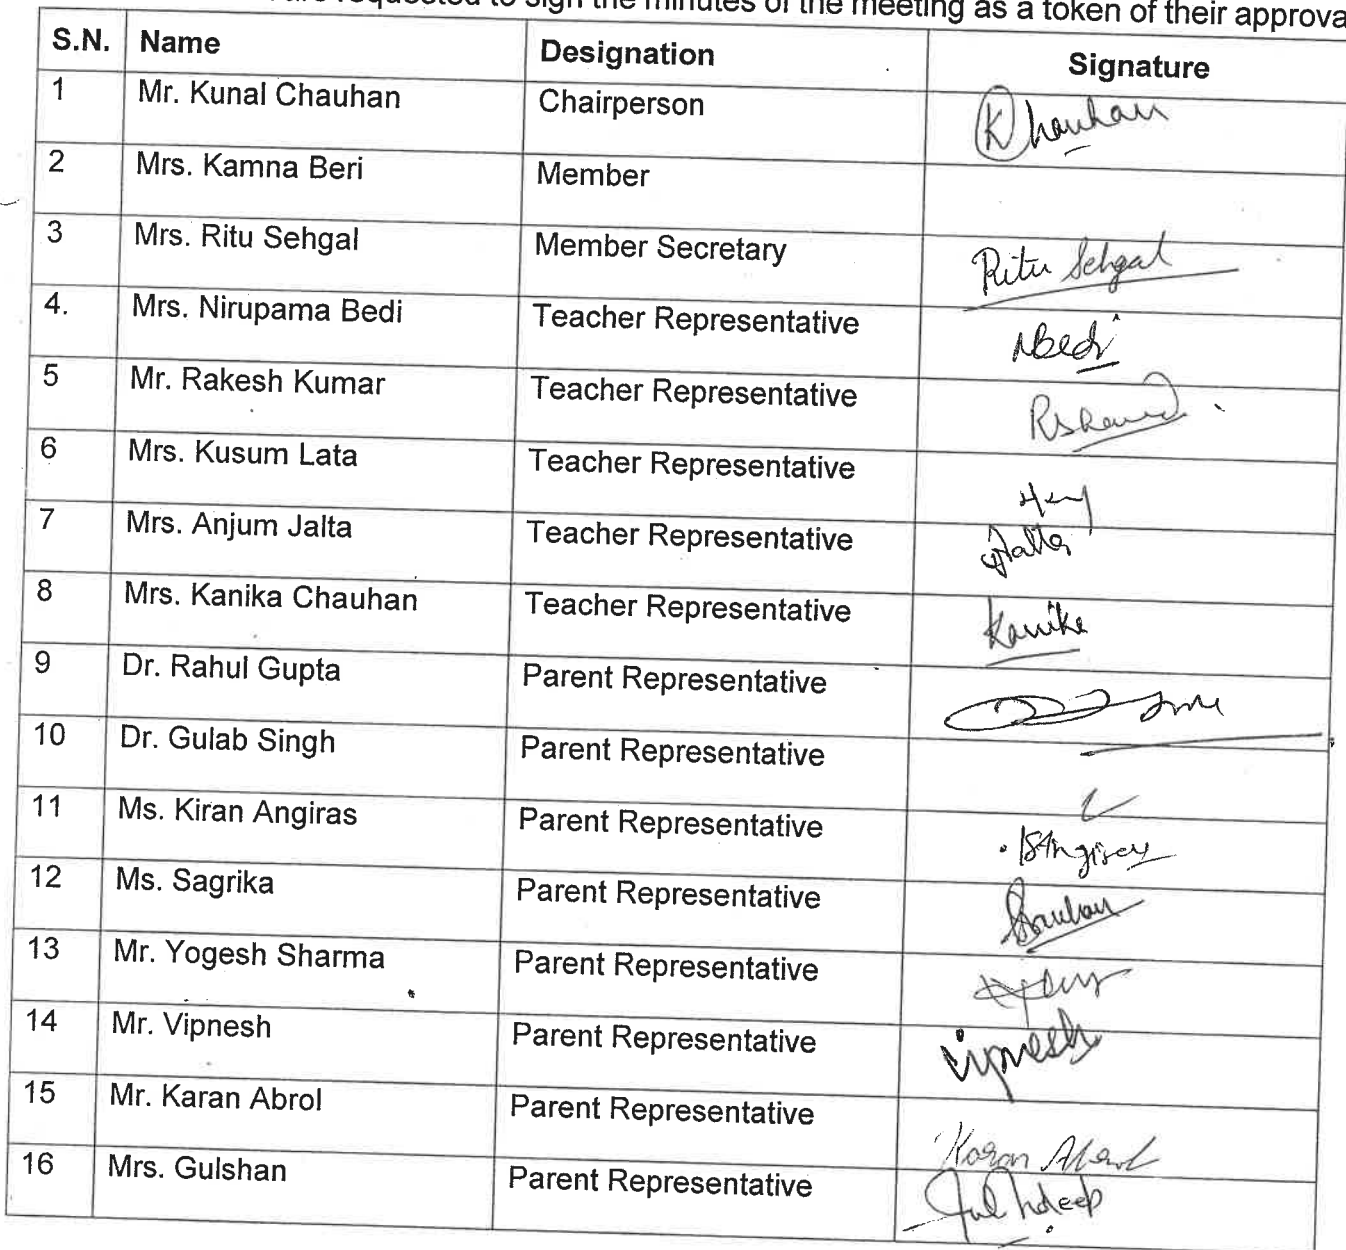 requested to sign the minutes of the meeting as a token of their approva
S.N. Name Designation Signature
1 Mr. Kunal Chauhan Chairperson KChauhan
2 Mrs. Kamna Beri Member
3 Mrs. Ritu Sehgal Member Secretary Ritu Sehgal
4. Mrs. Nirupama Bedi Teacher Representative NBedi
5 Mr. Rakesh Kumar Teacher Representative
6 Mrs. Kusum Lata Teacher Representative
7 Mrs. Anjum Jalta Teacher Representative Jalta
8 Mrs. Kanika Chauhan Teacher Representative Kanika
9 Dr. Rahul Gupta Parent Representative
10 Dr. Gulab Singh Parent Representative
11 Ms. Kiran Angiras Parent Representative
12 Ms. Sagrika Parent Representative
13 Mr. Yogesh Sharma Parent Representative
14 Mr. Vipnesh Parent Representative Vipnesh
15 Mr. Karan Abrol Parent Representative Karan Abrol
16 Mrs. Gulshan Parent Representative